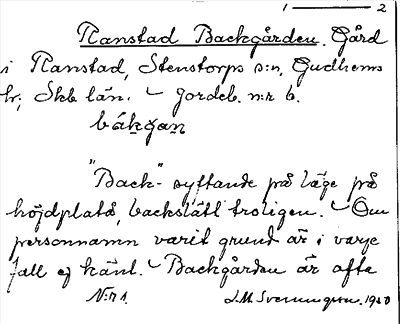 1 — 2
Ranstad Backgården. Gård
i Ranstad, Stenstorps s:n, Gudhems
hr; Skb län. – Jordeb. n:r 6.
bákgan
"Back-" syftande på läge på
höjdplatå, backslätt troligen. – Om
personnamn varit grund är i varje
fall ej känt. – Backgården är ofta
N:r 1. J. M. Svenungson. 1920